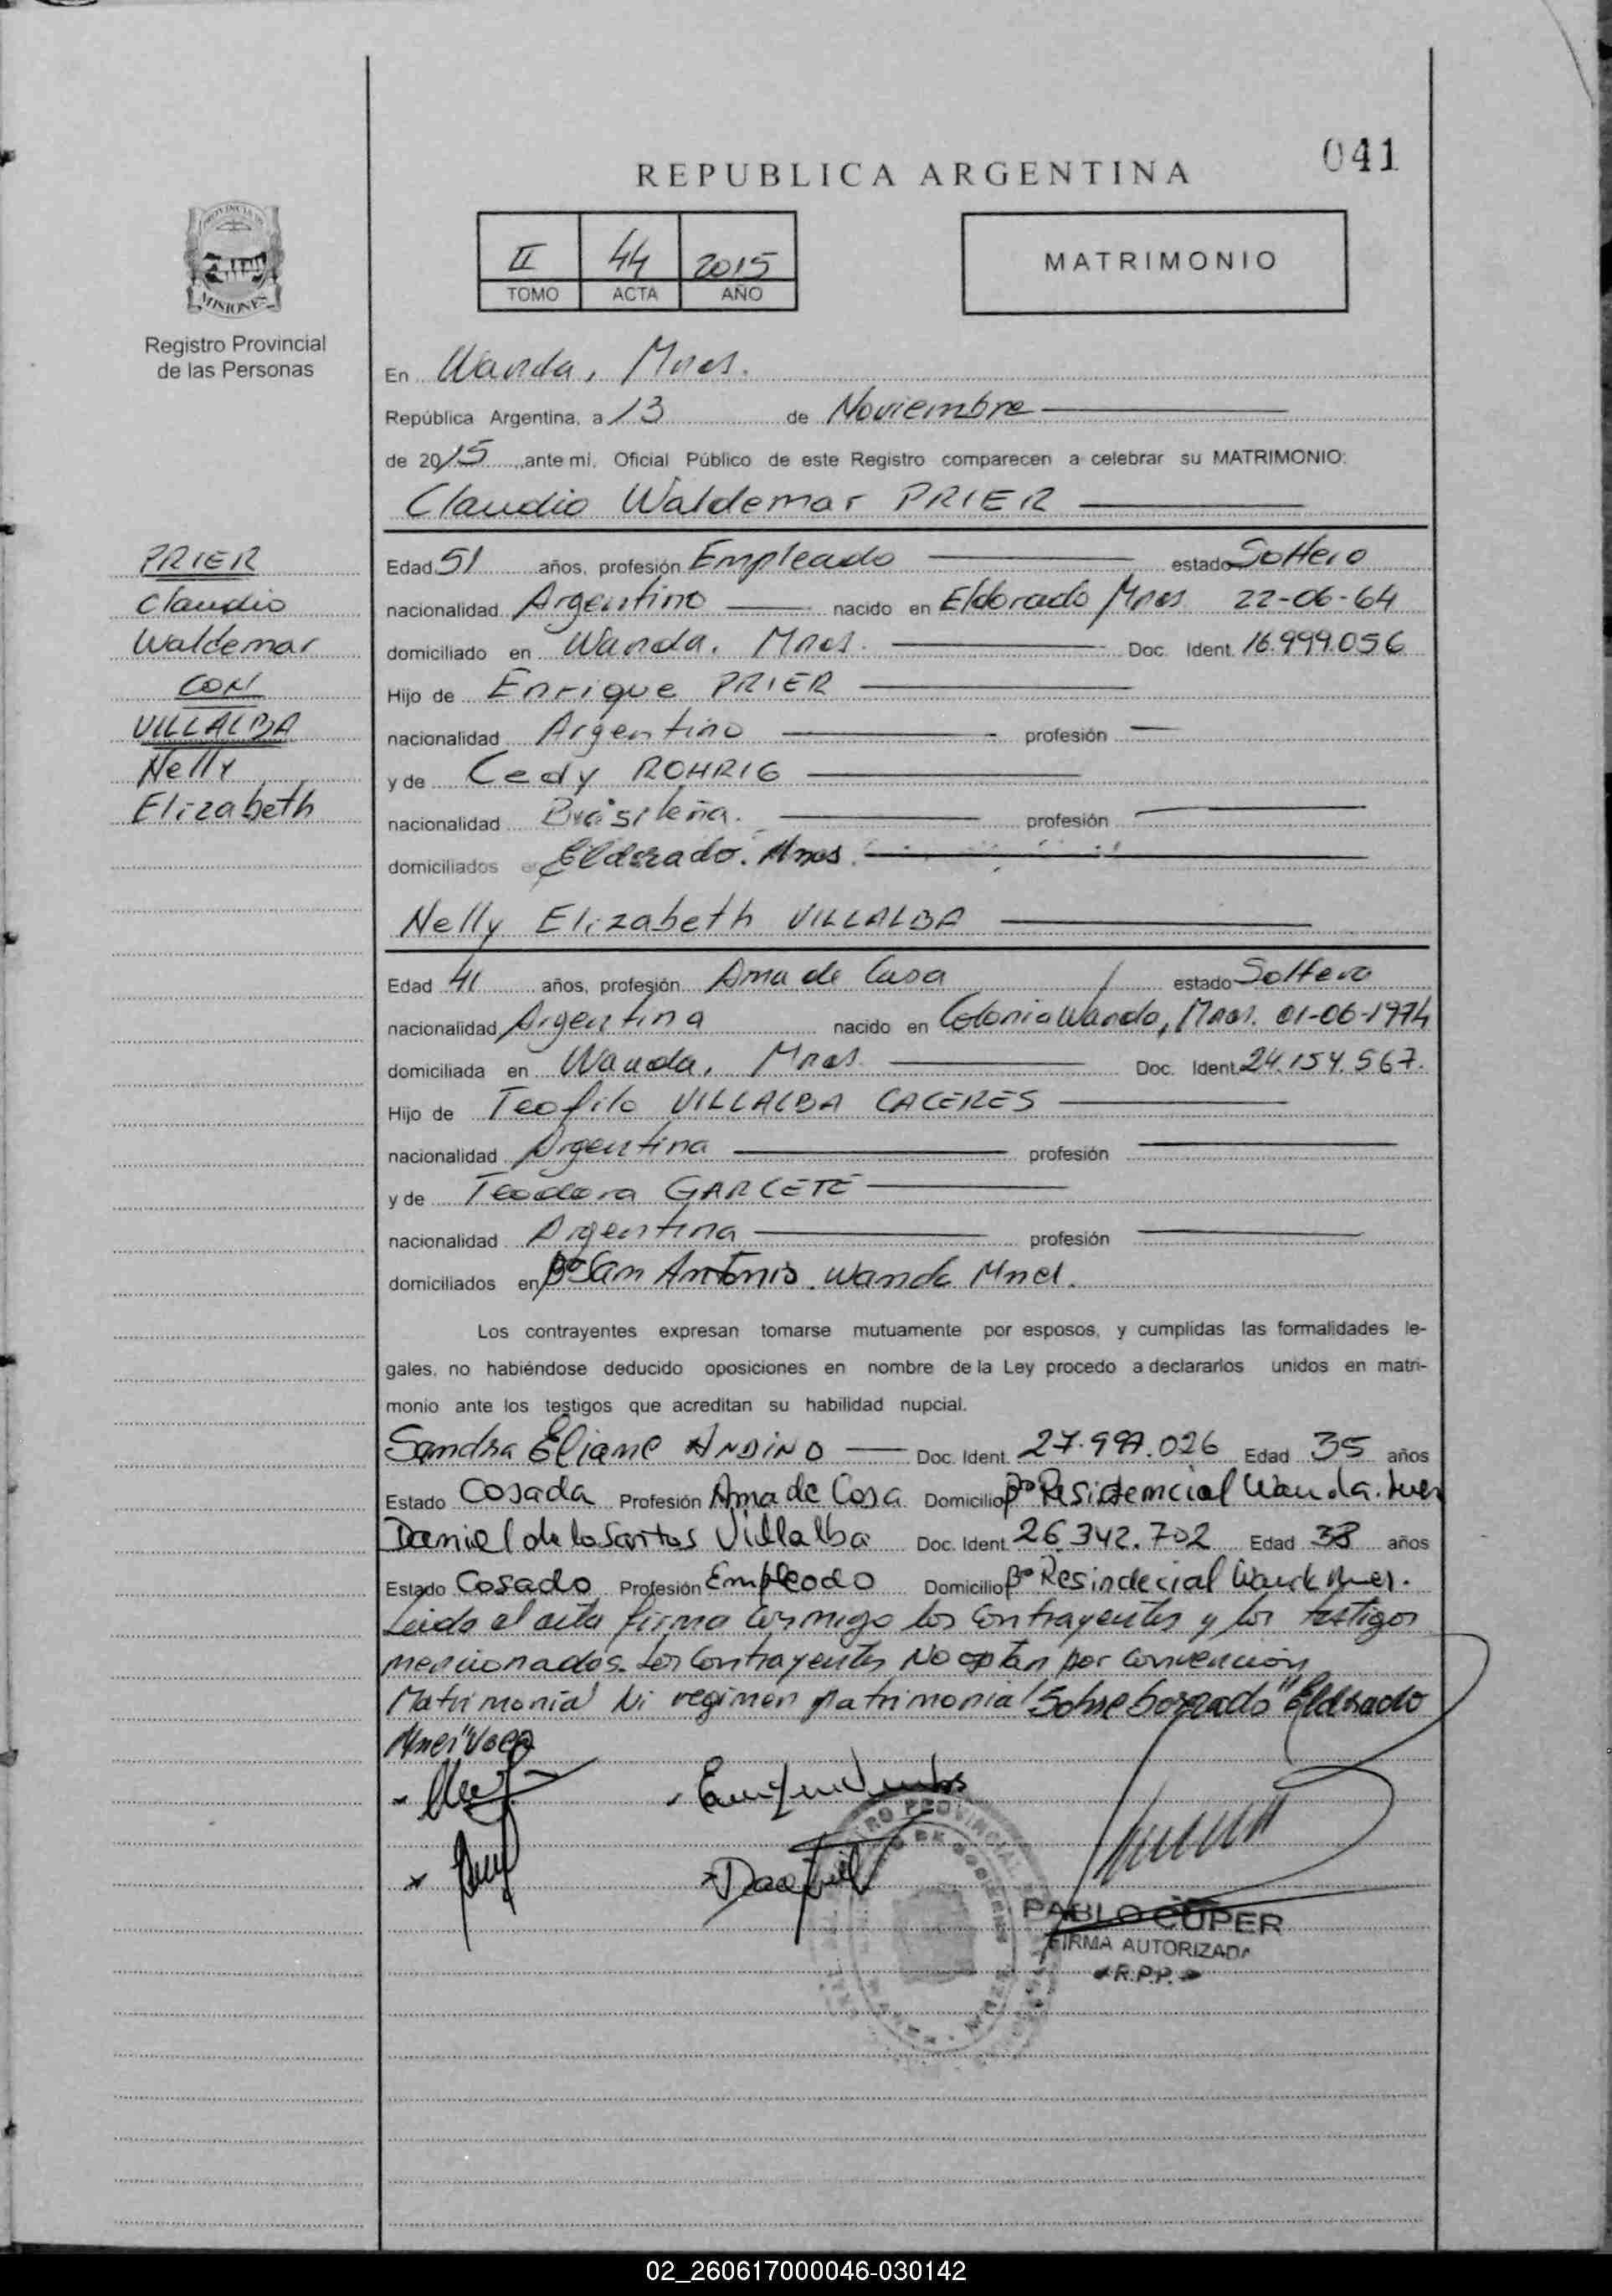 041
REPUBLICA ARGENTINA
II 44 2015
TOMO ACTA AÑO
MATRIMONIO
PROVINCIA DE
MISIONES
Registro Provincial
de las Personas
En Wanda, Mnes.
República Argentina, a 13 de Noviembre
de 2015, ante mi, Oficial Público de este Registro comparecen a celebrar su MATRIMONIO:
Claudio Waldemar PRIER
PRIER
Claudio
Waldemar
CON
VILLALBA
Nelly
Elizabeth
Edad 51 años, profesión Empleado estado Soltero
nacionalidad Argentino nacido en Eldorado Mnes 22-06-64
domiciliado en Wanda, Mnes. Doc. Ident. 16.999.056
Hijo de Enrique PRIER
nacionalidad Argentino profesión
y de Cedy ROHRIG
nacionalidad Brasileña. profesión
domiciliados en Eldorado. Mnes.
Nelly Elizabeth VILLALBA
Edad 41 años, profesión Ama de Casa estado Soltera
nacionalidad Argentina nacido en Colonia Wanda, Mnes. 01-06-1974
domiciliada en Wanda, Mnes. Doc. Ident. 24.154.567.
Hijo de Teofilo VILLALBA CACERES
nacionalidad Argentina profesión
y de Teodora GARCETE
nacionalidad Argentina profesión
domiciliados en Bº San Antonio. Wanda Mnes.
Los contrayentes expresan tomarse mutuamente por esposos, y cumplidas las formalidades le-
gales, no habiéndose deducido oposiciones en nombre de la Ley procedo a declararlos unidos en matri-
monio ante los testigos que acreditan su habilidad nupcial.
Sandra Eliane ANDINO Doc. Ident. 27.997.026 Edad 35 años
Estado Casada Profesión Ama de Casa Domicilio Bº Residencial Wanda. Mnes
Daniel de los Santos Villalba Doc. Ident. 26.342.702 Edad 38 años
Estado Casado Profesión Empleado Domicilio Bº Resindecial Wanda Mnes.
Leida el acta firma conmigo los Contrayentes y los testigos
mencionados. Los Contrayentes No optan por Convencion
Matrimonial Ni regimen patrimonial Sobreborrado "Eldorado
Mnes" Vale
PABLO CUPER
FIRMA AUTORIZADA
R.P.P.
02_260617000046-030142